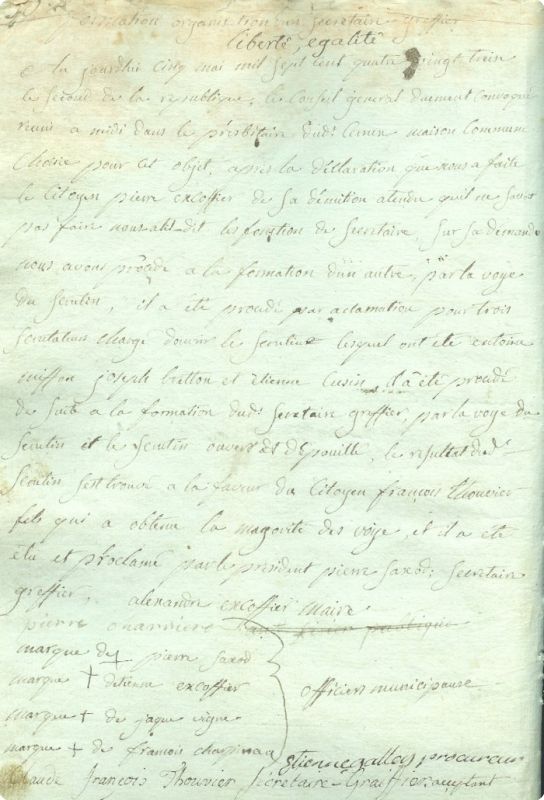 organisation du secretaire greffier
liberté, egalité
Ce jourdhui cinq mai mil sept cent quatre vingt treize
le second de la republique, le Conseil general duement convoqué
reuni a midi dans le présbitaire dudt maison Commune
Choisie pour cet objet, après la déclaration que nous a faite
le Citoyen pierre excoffier de sa démition atendu quil ne
pas faire dit les fonction de Secretaire, Sur sa demande
nous avons procédé a la formation d'un autre, par la voye
Du Scrutin, il a été procédé par aclamation pour trois
Scrutateurs chargé douvrir le scrutin lesquel ont été antoine
miffon joseph bretton et etienne Cusin, il a été procédé
de suite a la formation dudt Secretaire greffier, par la voye du
Scrutin et le Scrutin ouvert et dépouillé, le resultat dudt
Scrutin s'est trouvé a la faveur du Citoyen françois thouvier
fils qui a obtenu la magorité des voye, et il a été
élu et proclamé par le president pierre saxod; Secretaire
greffier, alexandre excoffier maire
pierre charriere
marque de + pierre saxod
marque + detienne excoffier officiers municipause
marque + de jaque vigne
marque + de francois etienne gallay procureur
Claude François Thouvier Sécrétaire-Graiffier acceptant